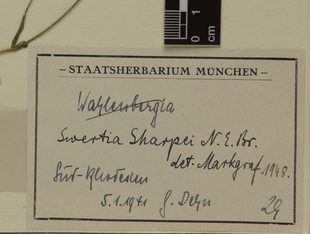 0 1
cm
– STAATSHERBARIUM MÜNCHEN –
Wahlenbergia
Swertia Sharpei N. E. Br.
det. Markgraf 1948.
Süd-Rhodesien
5.1.1941 G. Dehn
29